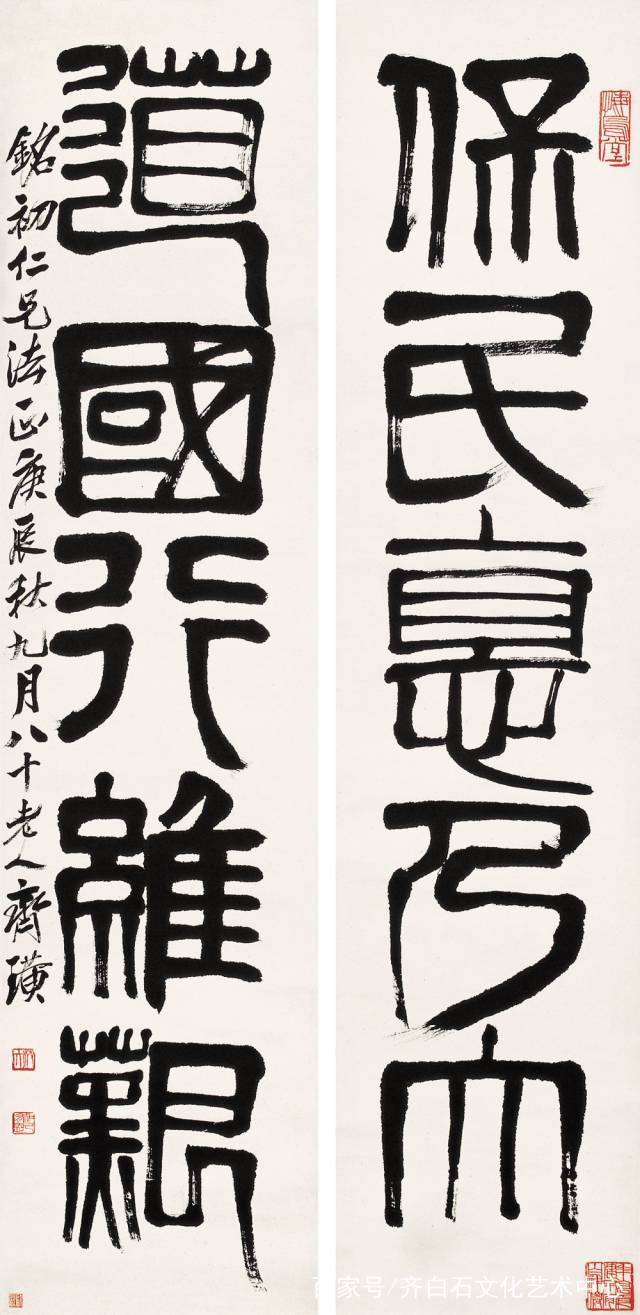 保民悳乃大
道國行維艱
銘初仁兄法正庚辰秋九月八十老人齊璜
悔烏堂
百家号/齐白石文化艺术中心